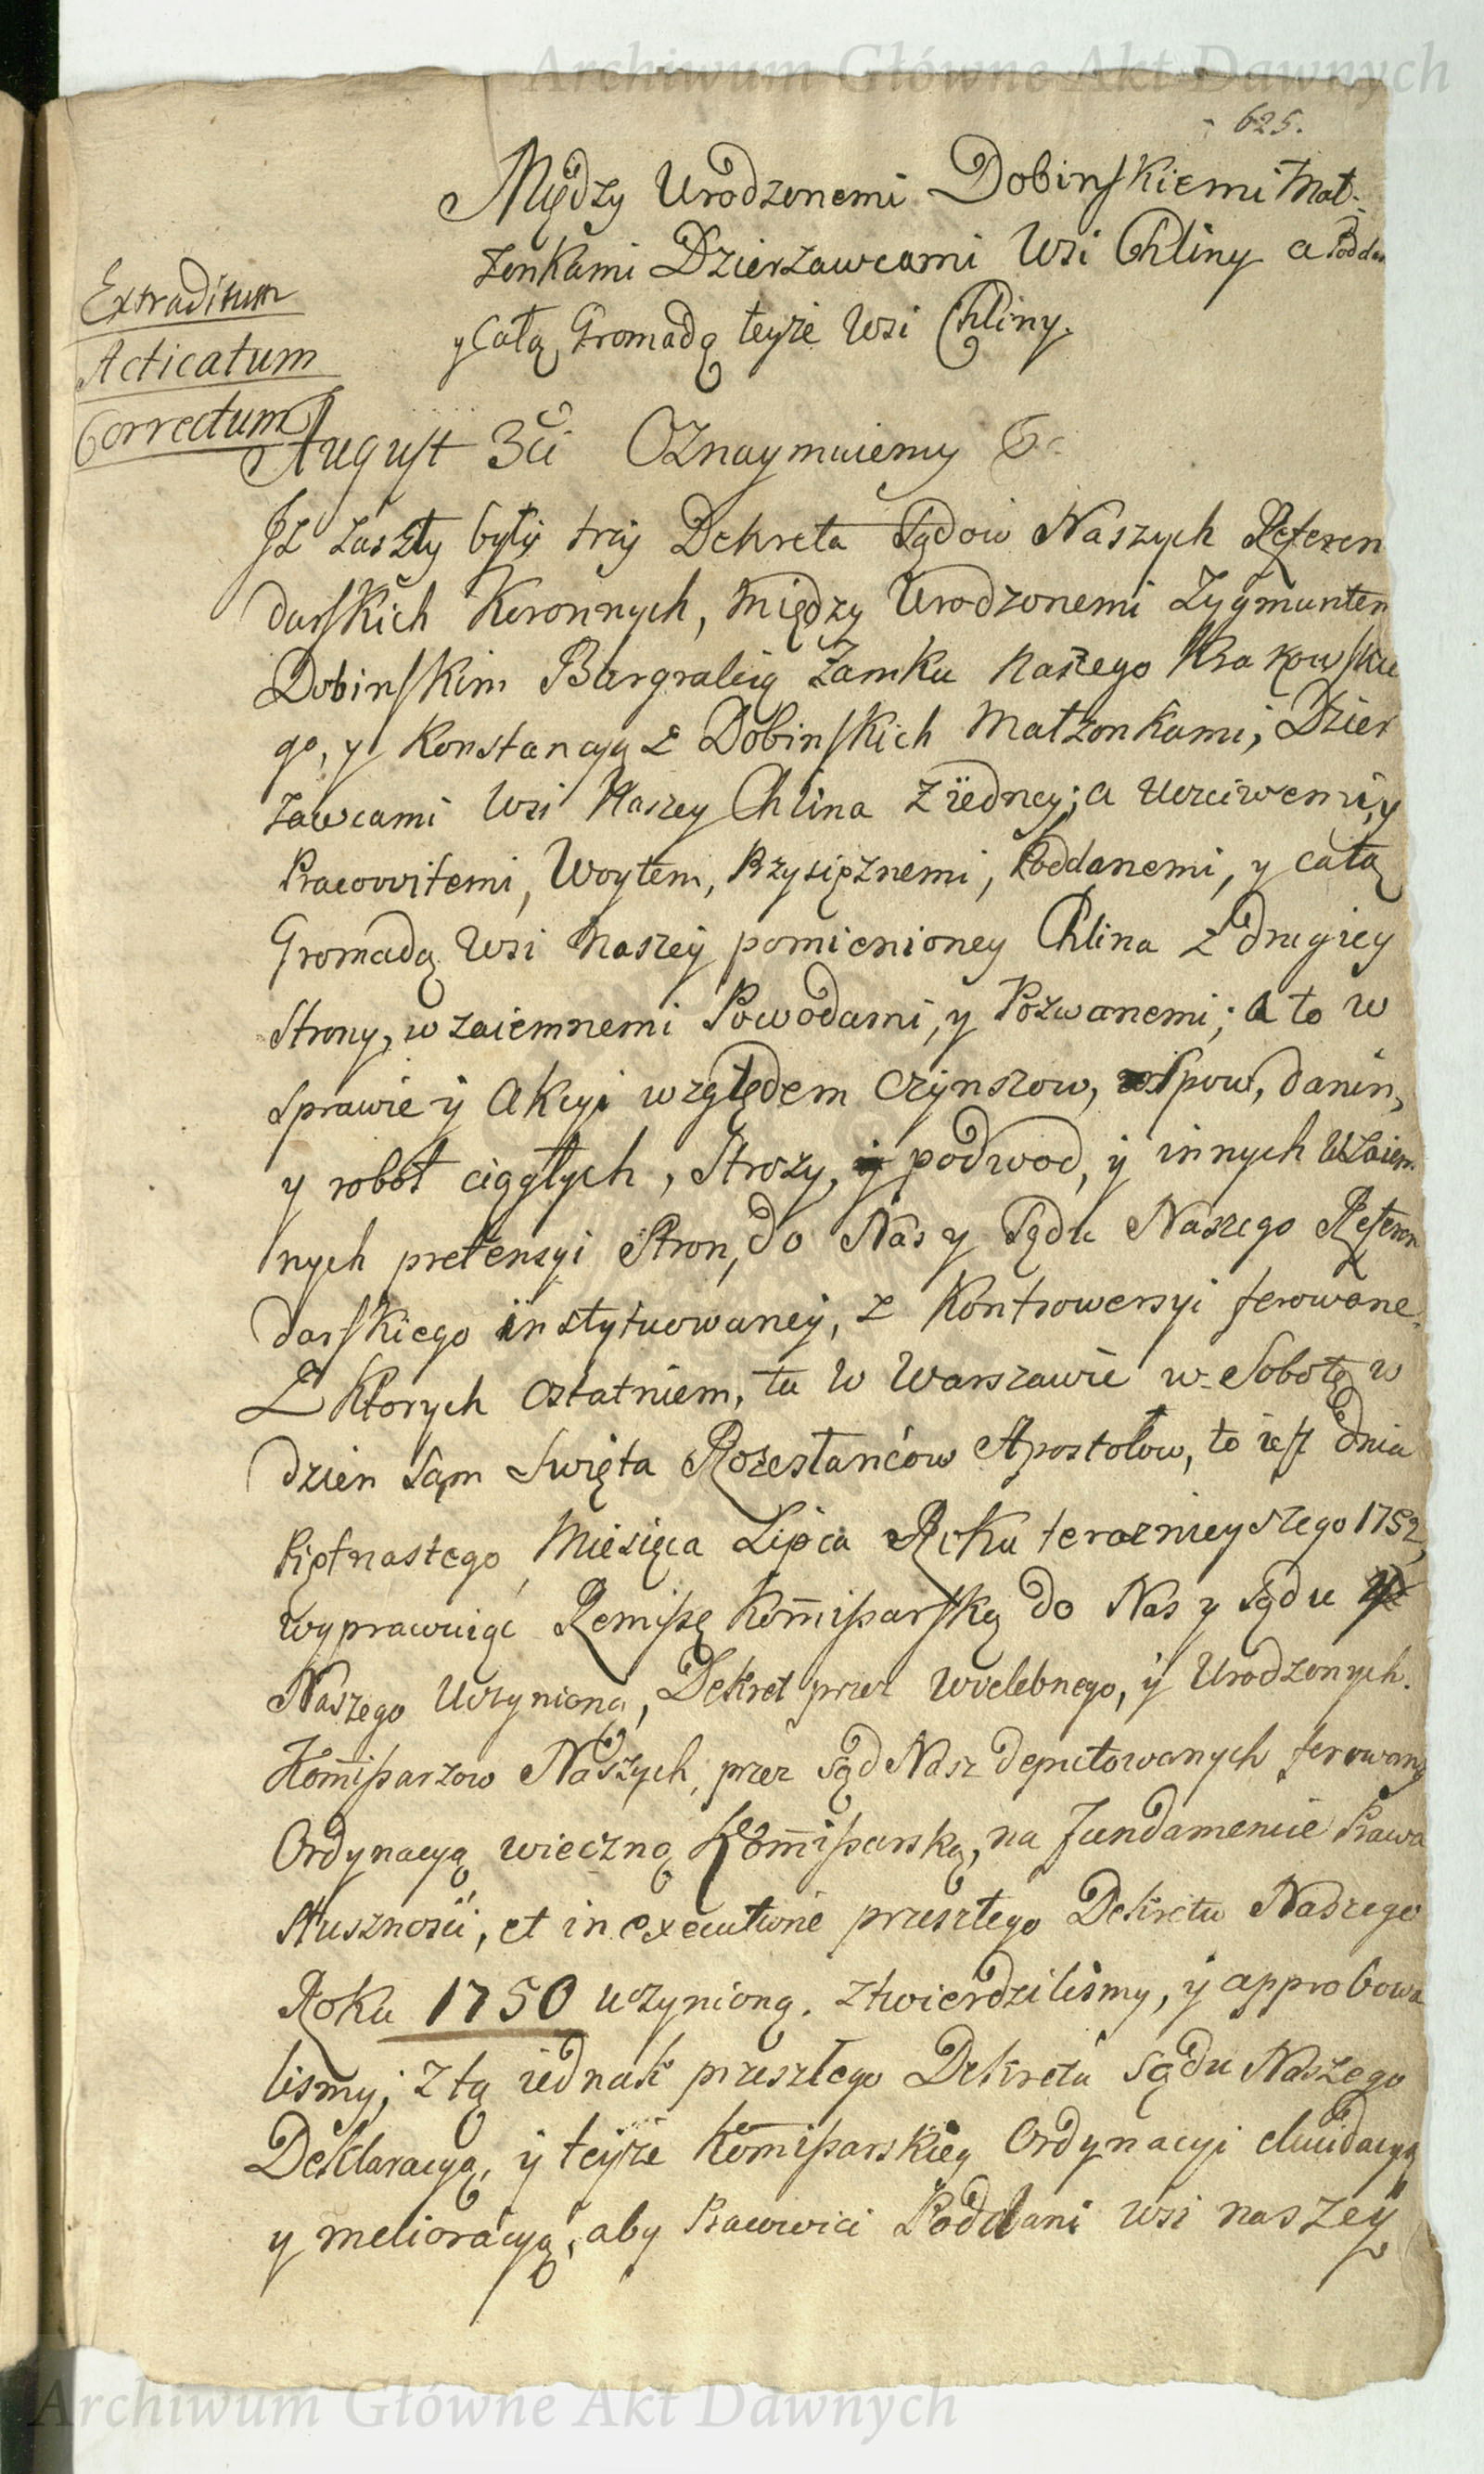 Archiwum Główne Akt Dawnych
625.
Między Urodzonemi Dobinskiemi Mał-
zonkami Dzierzawcami Wsi Chliny a Poddan
y Całą Gromadą teyże Wsi Chliny.
Extraditum
Acticatum
Correctum
August 3ci Oznaymuiemy &c
Jż zaszły były trzy Dekreta Sądow Naszych Referen
darskich Koronnych, między Urodzonemi Zygmuntem
Dobinskim Burgrabią Zamku naszego Krakowskie
go, y Konstancyą z Dobinskich Małzonkami, Dzier
zawcami Wsi Naszey Chlina z iedney; a Uczciwemi, y
Pracowitemi, Woytem, Przysięznemi, Poddanemi, y całą
Gromadą Wsi naszey pomienioney Chlina z drugiey
Strony, wzaiemnemi Powodami, y Pozwanemi; a to w
sprawie y Akcyi względem Czynszow, ospow, danin,
y robot ciągłych, Strozy, y podwod, y innych Wzaiem
nych pretensyi Stron, do Nas y Sądu Naszego Referen
darskiego instytuowaney, z Kontrowersyi ferowane.
Z Ktorych ostatniem, tu w Warszawie w Sobotę w
dzien sam Swięta Rozesłańców Apostołow, to iest dnia
Piętnastego Miesiąca Lipca Roku teraznieyszego 1752,
wyprawuiąc Remissę Kommissarską do Nas y Sądu
Naszego Uczynioną, Dekret przez Wielebnego, y Urodzonych
Kommissarzow Naszych, przez Sąd Nasz deputowanych ferowany
Ordynacyą wieczną Kommissarską, na fundamencie Prawa
słusznosci, et in executione przeszłego Dekretu Naszego
Roku 1750 uczynioną. ztwierdzilismy, y approbowa
lismy; z tą iednak przeszłego Dekretu Sądu Naszego
Deklaracyą, y teyże Kommissarskiey Ordynacyi elucidacyą
y melioracyą, aby Pracowici Poddani wsi naszey
Archiwum Główne Akt Dawnych